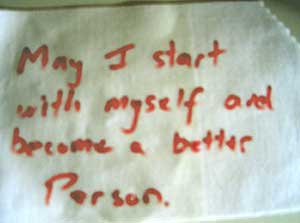 May I start
with myself and
become a better
Person.